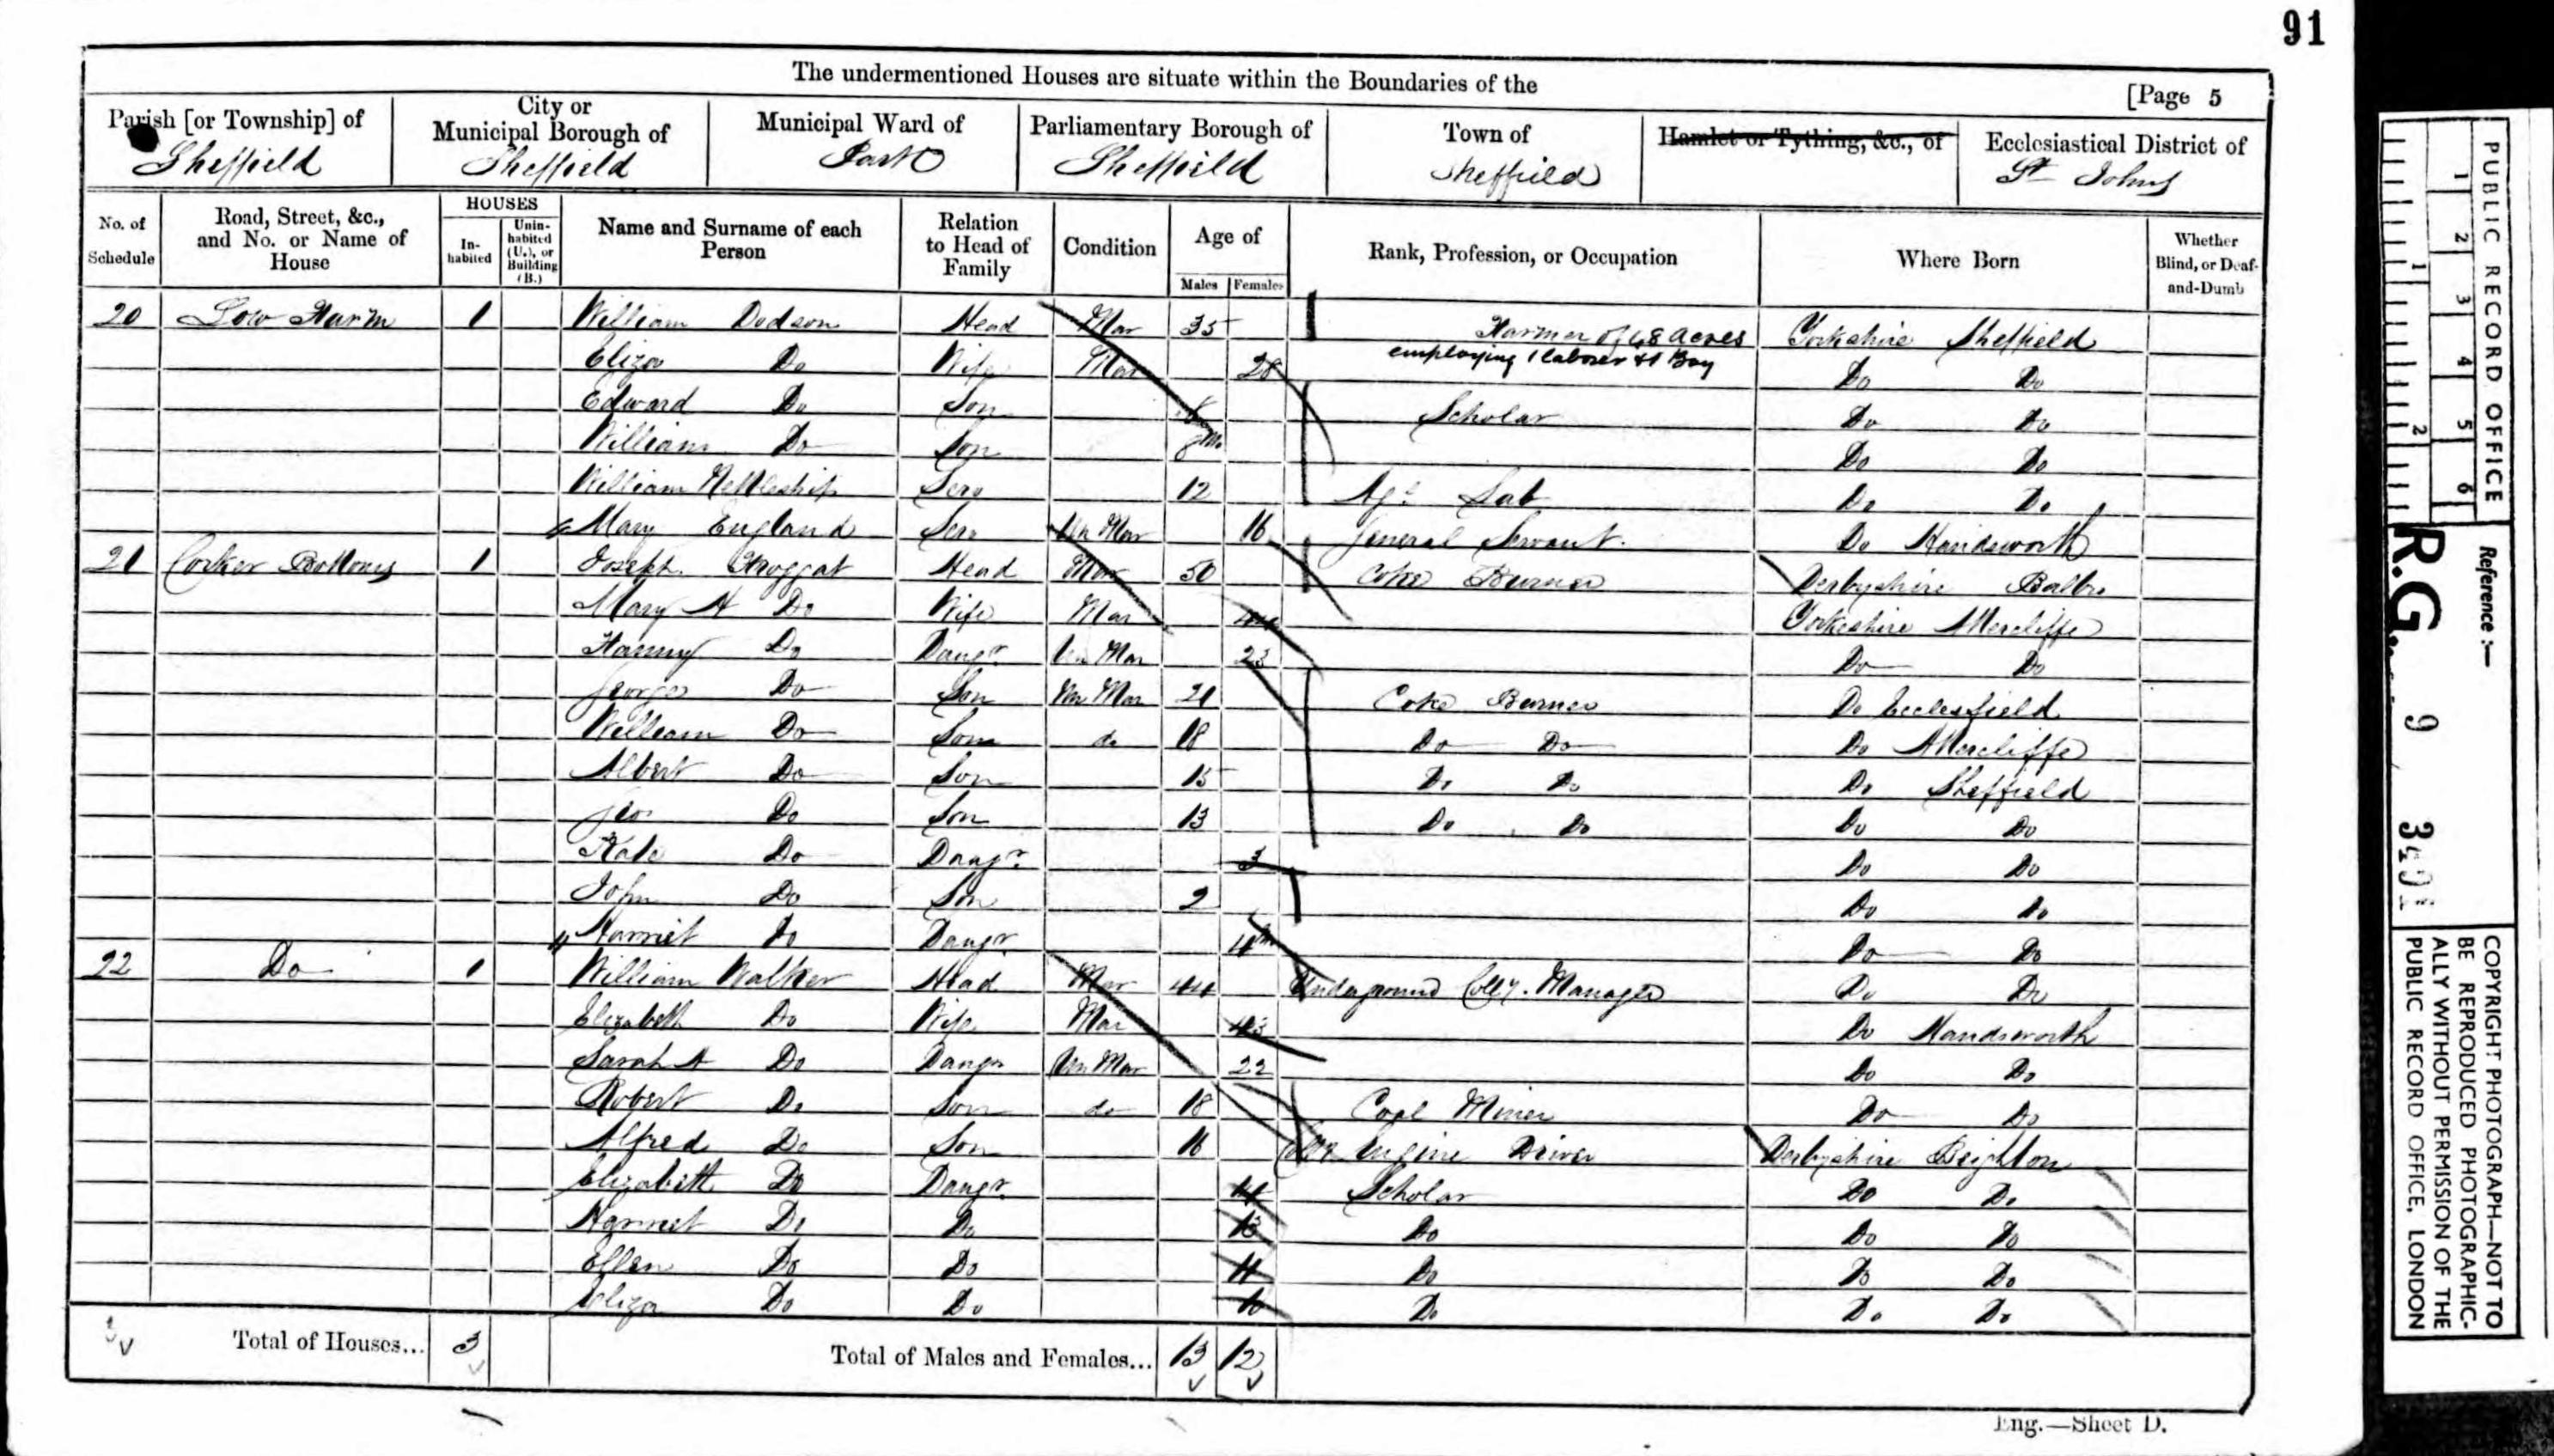 91
The undermentioned Houses are situate within the Boundaries of the
[Page 5
Parish [or Township] of
Sheffield
City or
Municipal Borough of
Sheffield
Municipal Ward of
Park
Parliamentary Borough of
Sheffield
Town of
Sheffield
Hamlet or Tything, &c., of
Ecclesiastical District of
St Johns
No. of Schedule
Road, Street, &c., and No. or Name of House
HOUSES
In-habited
Unin-habited (U.), or Building (B.)
Name and Surname of each Person
Relation to Head of Family
Condition
Age of
Males
Females
Rank, Profession, or Occupation
Where Born
Whether Blind, or Deaf-and-Dumb
20 Low Farm 1 William Dodson Head Mar 35 Farmer of 68 acres Yorkshire Sheffield
employing 1 laborer & 1 Boy
Eliza Do Wife Mar 28 Do Do
Edward Do Son Scholar Do Do
William Do Son Do Do
William Nettleship Serv 12 Agl Lab Do Do
Mary England Serv Un Mar 16 General Servant Do Handsworth
21 Corker Bottoms 1 Joseph Froggat Head Mar 50 Coke Burner Derbyshire
Mary A Do Wife Mar 44 Yorkshire Attercliffe
Fanny Do Daugr Un Mar 23 Do Do
George Do Son Un Mar 21 Coke Burner Do Ecclesfield
William Do Son do 18 Do Do Do Attercliffe
Albert Do Son 15 Do Do Do Sheffield
Do Son 13 Do Do Do Do
Kate Do Daugr 3 Do Do
John Do Son 2 Do Do
Harriet Do Daugr 4m Do Do
22 Do 1 William Walker Head Mar 44 Underground Colly. Manager Do Do
Elizabeth Do Wife Mar 43 Do Handsworth
Sarah A Do Daugr Un Mar 22 Do Do
Robert Do Son do 18 Coal Miner Do Do
Alfred Do Son 16 Engine Driver Derbyshire Beighton
Elizabeth Do Daugr 14 Scholar Do Do
Harriet Do Do 13 Do Do Do
Ellen Do Do 11 Do Do Do
Eliza Do Do 10 Do Do Do
Total of Houses... 3
Total of Males and Females... 13 12
Eng.—Sheet D.
PUBLIC RECORD OFFICE
1 2 3 4 5 6
1 2
Reference :—
R.G. 9
COPYRIGHT PHOTOGRAPH—NOT TO
BE REPRODUCED PHOTOGRAPHIC-
ALLY WITHOUT PERMISSION OF THE
PUBLIC RECORD OFFICE, LONDON